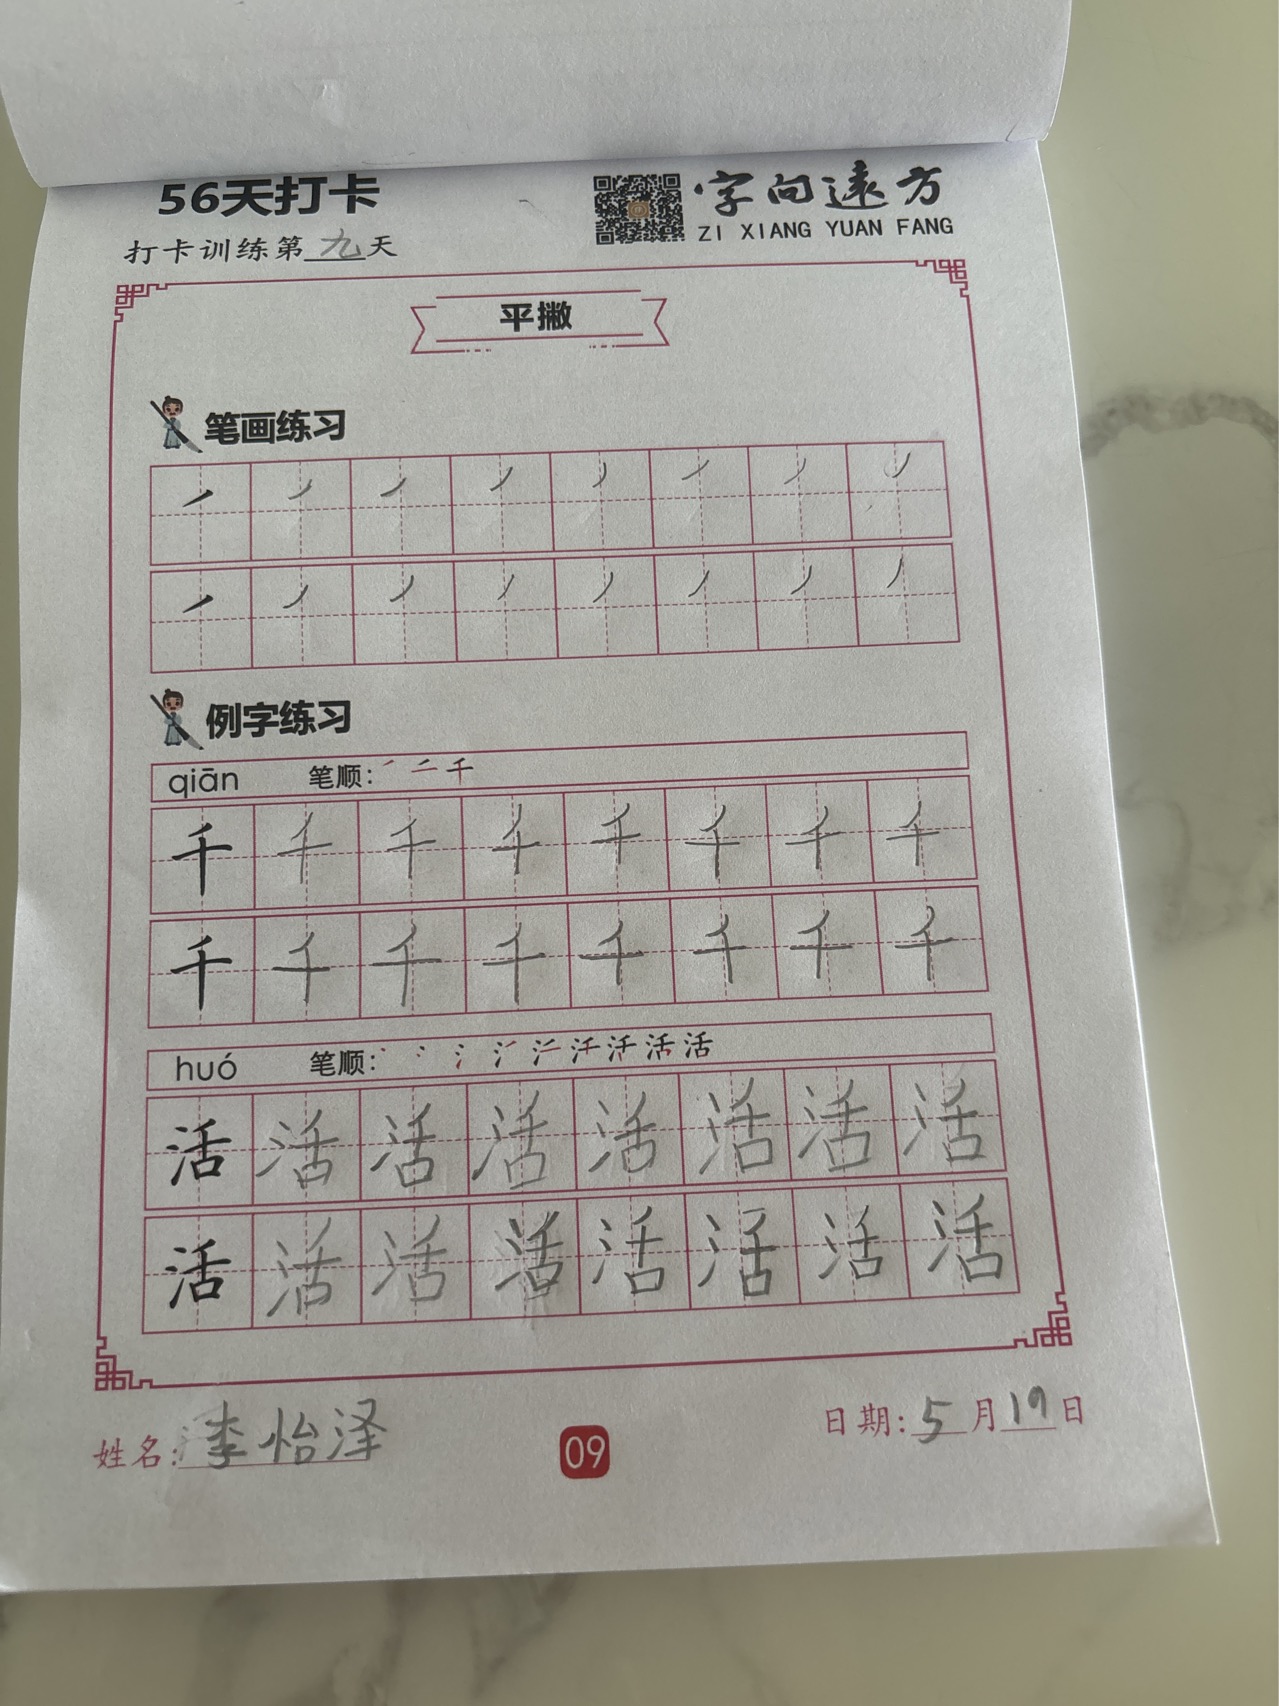 56天打卡
字向远方
ZI XIANG YUAN FANG
打卡训练第九天
平撇
笔画练习
㇒㇒㇒㇒㇒㇒㇒㇒
㇒㇒㇒㇒㇒㇒㇒㇒
例字练习
qiān 笔顺: ㇒ 二 千
千千千千千千千千
千千千千千千千千
huó 笔顺: 活
活活活活活活活活
活活活活活活活活
姓名:李怡泽
09
日期:5月19日